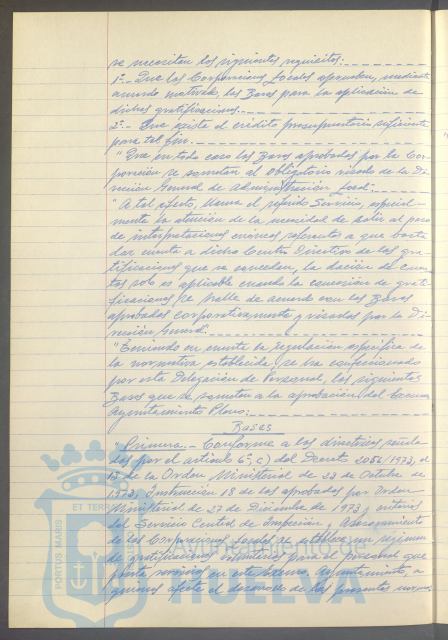 se necesitan los siguientes requisitos:
1º.- Que las Corporaciones Locales aprueben, mediante
acuerdo motivado, las Bases para la aplicación de
dichas gratificaciones.
2º.- Que exista el crédito presupuestario suficiente
para tal fin.
"Que en todo caso las Bases aprobadas por la Cor-
poración se sometan al obligatorio visado de la Di-
rección General de Administración Local."
"A tal efecto, llama el referido Servicio, especial-
mente la atención de la necesidad de salir al paso
de interpretaciones erróneas referentes a que basta
dar cuenta a dicho Centro Directivo de las gra-
tificaciones que se conceden, la dación de cuen-
tas solo es aplicable cuando la concesión de grati-
ficaciones se halle de acuerdo con las Bases
aprobadas corporativamente y visadas por la Di-
rección General."
"Teniendo en cuenta la regulación específica de
la normativa establecida, se ha confeccionado
por esta Delegación de Personal, las siguientes
Bases que se someten a la aprobación del Excmo.
Ayuntamiento Pleno:
Bases
"Primera.- Conforme a las directrices señala-
das por el artículo 6º, c) del Decreto 2056/1973, el
13 de la Orden Ministerial de 23 de Octubre de
1973, Instrucción 18 de las aprobadas por Orden
Ministerial de 27 de Diciembre de 1973 y criterios
del Servicio Central de Inspección y Asesoramiento
de las Corporaciones Locales se establece un régimen
de gratificaciones para el Personal que
presta servicios en este Excmo. Ayuntamiento, a
quienes afecte el desarrollo de las presentes normas
PORTUS MARIS
ET TERRAE
Ayuntamiento de
HUELVA